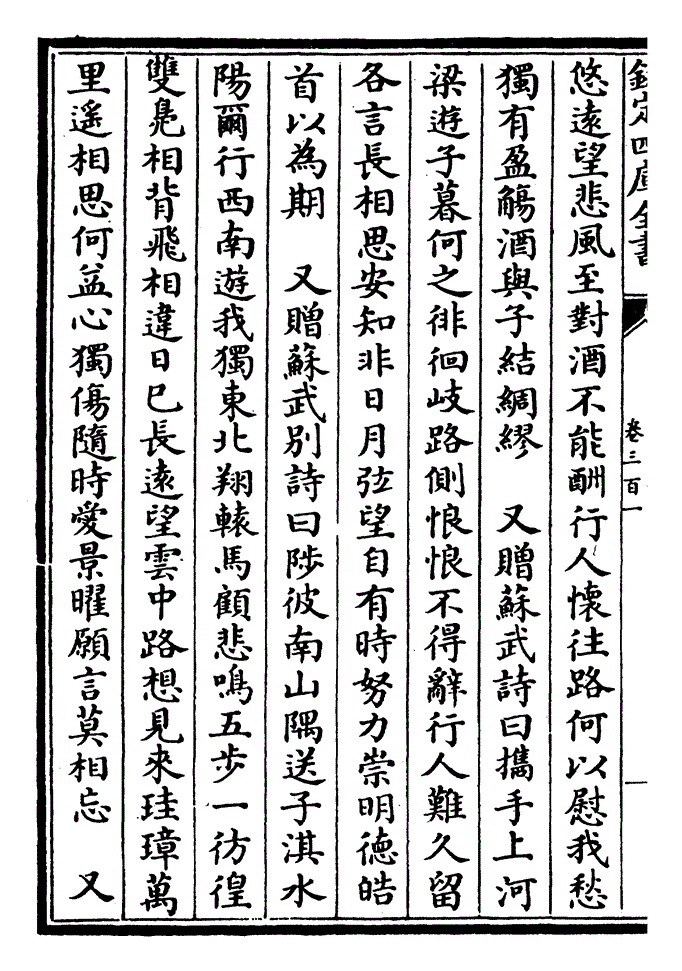 欽定四庫全書
卷三百一
悠遠望悲風至對酒不能酬行人懷往路何以慰我愁
獨有盈觴酒與子結綢繆　又贈蘇武詩曰攜手上河
梁遊子暮何之徘徊岐路側悢悢不得辭行人難久留
各言長相思安知非日月弦望自有時努力崇明德皓
首以為期　又贈蘇武別詩曰陟彼南山隅送子淇水
陽爾行西南遊我獨東北翔轅馬顧悲鳴五步一彷徨
雙鳧相背飛相違日已長遠望雲中路想見來珪璋萬
里遥相思何益心獨傷隨時愛景曜願言莫相忘　又